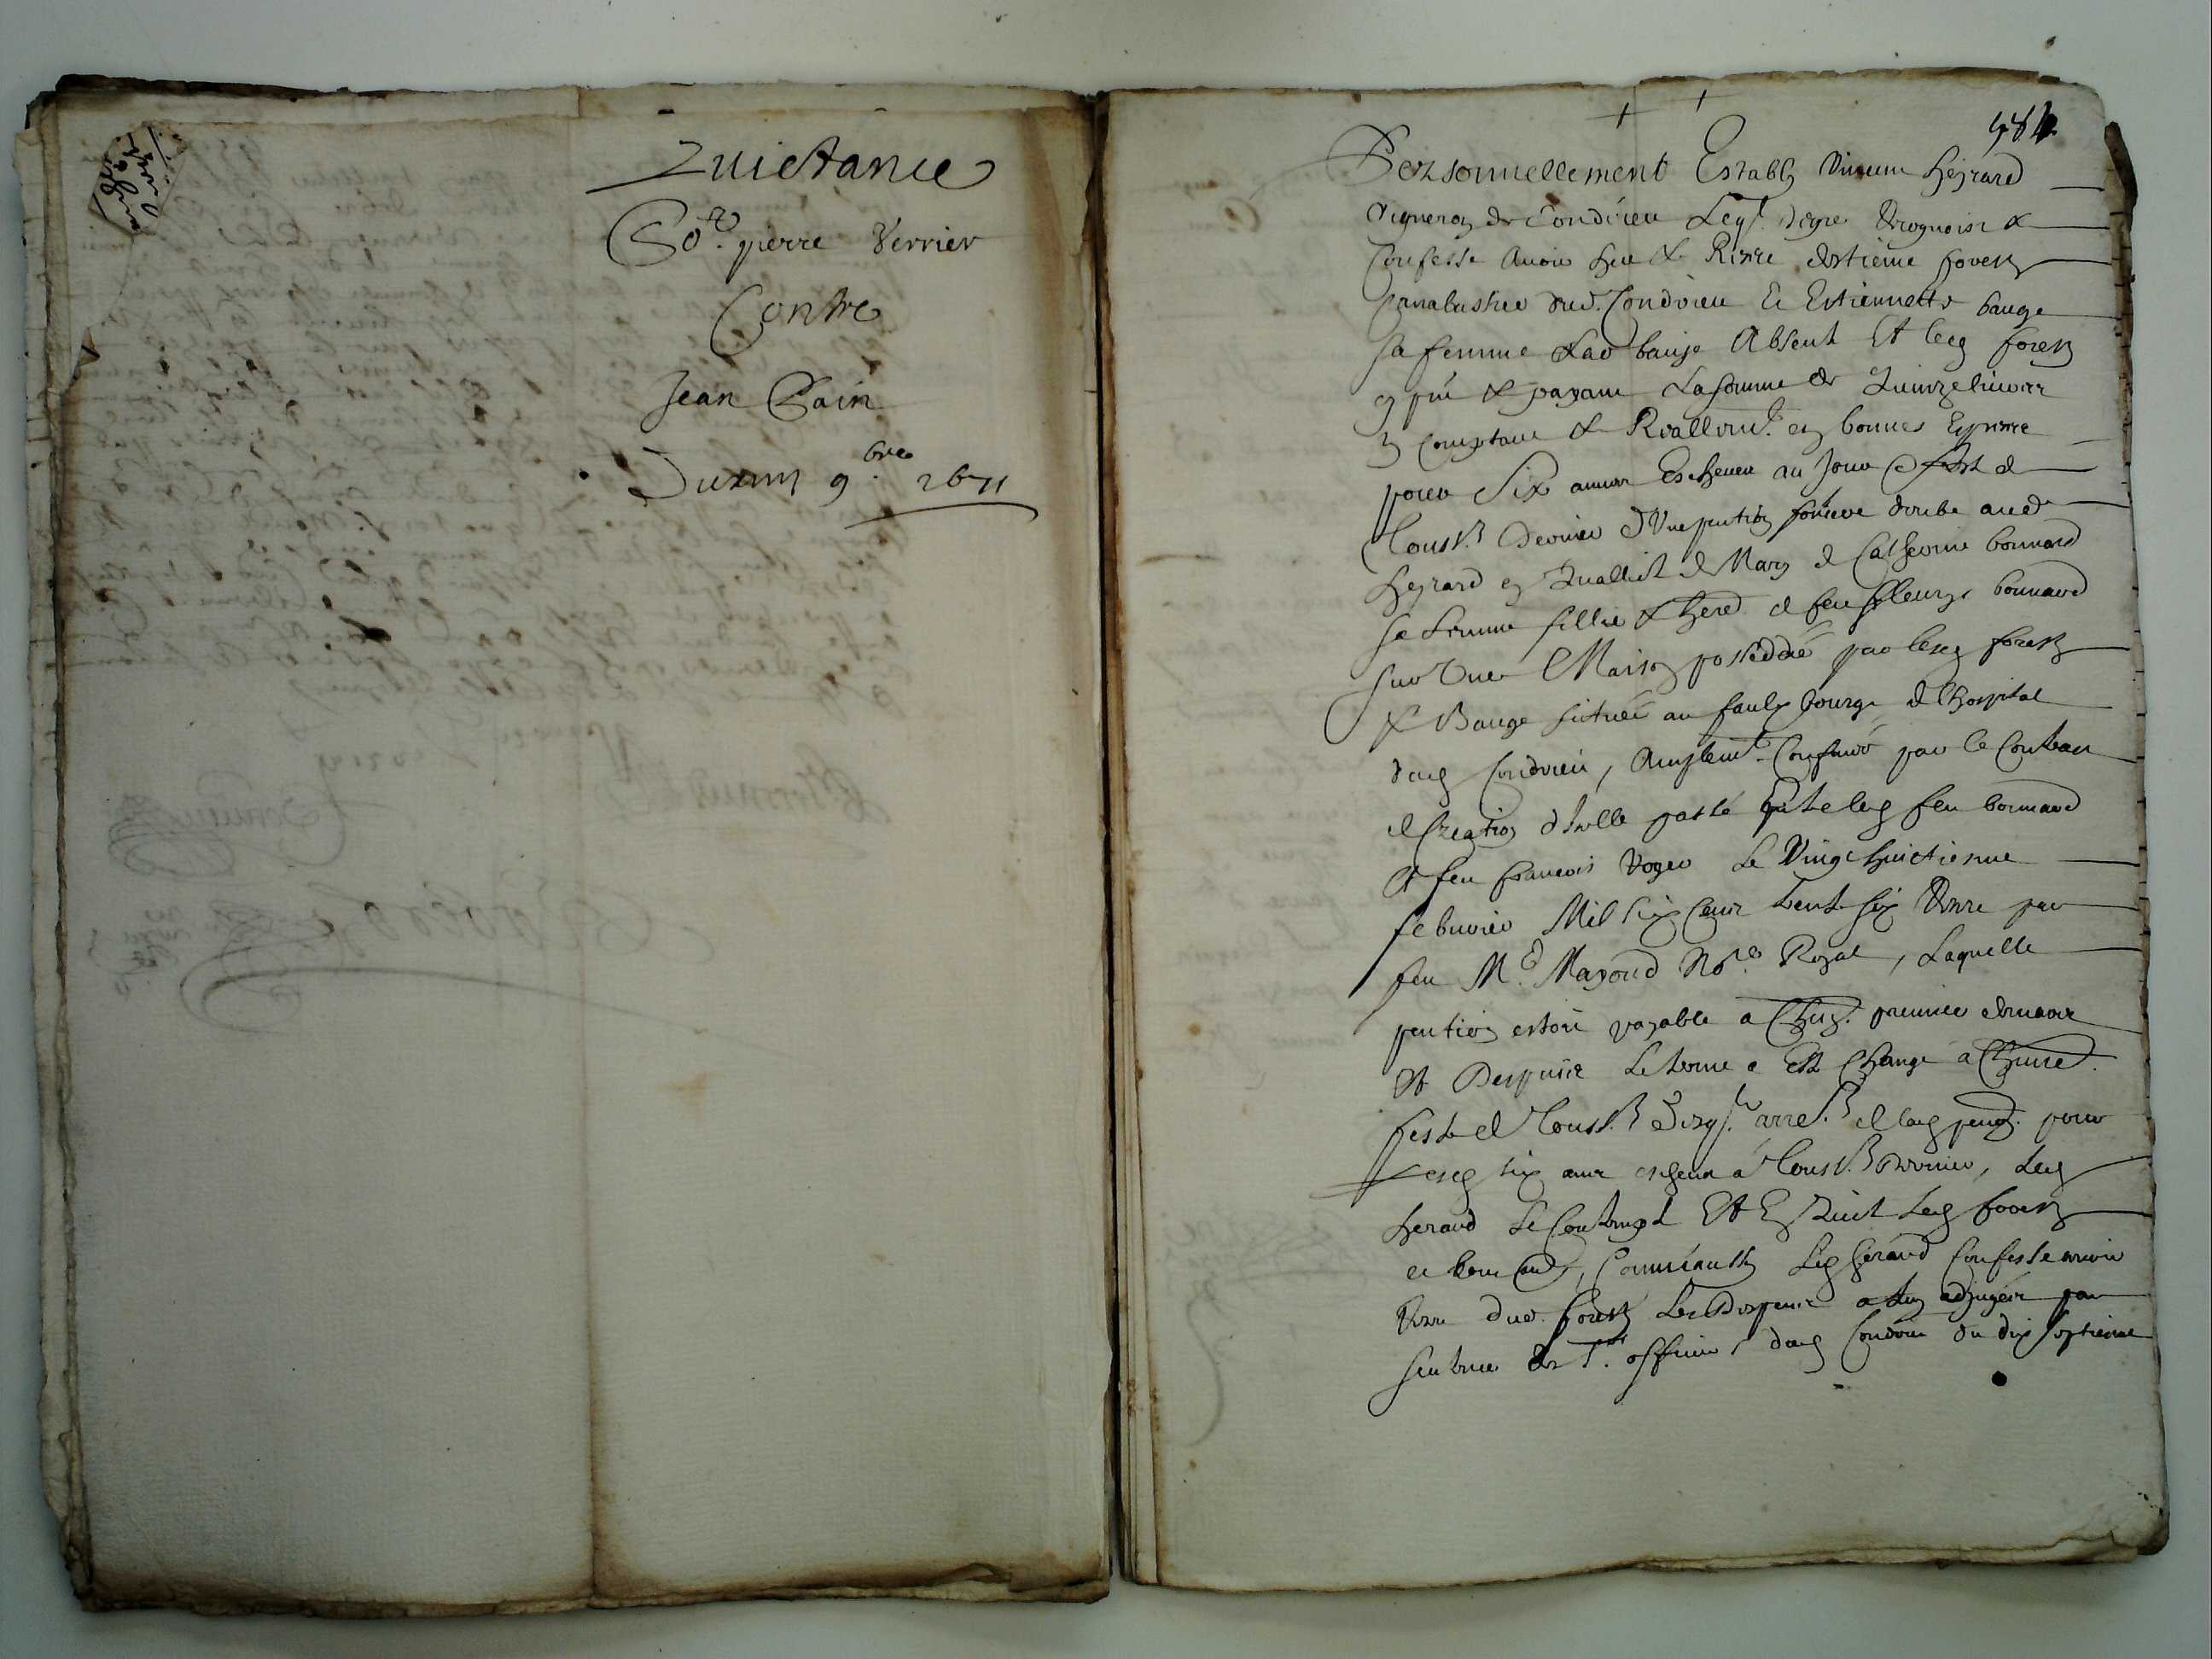 Quictance
Po.r pierre Verrier
Contre
Jean Pain
Du xm 9.bre 1671
484
Personnellement Estably Vincent heyrard
vigneron de Condrieu Leql. de gre Recognoist &
Confesse Avoir heu & Receu destiene forest
dud. Condrieu Et Estiennette bauge
sa femme lad bauge Absent Et led forest
pnt & payant la somme de Quinze livres
comptant & Reallemt. en bonnes Especes
pour Six annees Escheues au Jour & feste de
Touss.ts dernier d'Une pention fonciere deube aud.
heyrard en quallité de Mary de Catherine bonnard
sa femme fillie & hered. de feu fleury bonnard
sur Une Maison possedée par lesd forest
& Bauge Situéé au faulxbourg de l'hospital
dud Condrieu, Amplemt. Confiné par le Contract
de Creation d'Icelle passé entre led feu bonnard
Et feu francois Voger Le Vingt huictiesme
febvrier Mil six Cens trente six Receu par
feu M.e Mayoud No.re Royal, Laquelle
pention estoit payable a Chasq. premier de mars
Et Despuis Le terme a Esté Changé a Chasque
feste de Touss.ts Desq.ls arre.s de lad pention pour
lesd six ans escheus a Touss.ts dernier, led
herard Se Contempt Et En Quicte led forest
Comme aussy led herard Confesse avoir
Receu dud. forest Les Despens a luy adjugés par
sentence de S.rs officiers dud Condrieu du dix septiesme